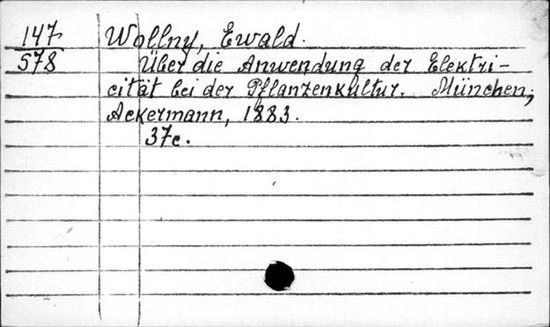 147 Wollny, Ewald.
578 Über die Anwendung der Elektri-
cität bei der Pflanzenkultur. München,
Ackermann, 1883.
37c.